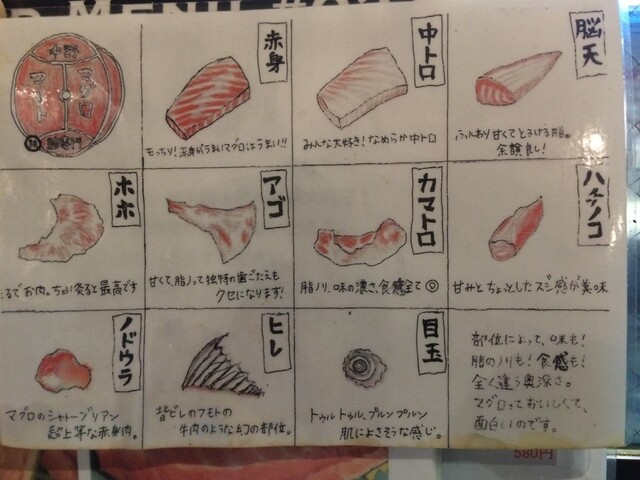 赤身
もっちり！赤身がうまいマグロはうまい!!
中トロ
みんな大好き！なめらか中トロ
脳天
ふんわり甘くてとろける脂。
余韻良し！
ホホ
るでお肉。ちょい炙ると最高です
アゴ
甘くて、脂ノッて独特の歯ごたえも
クセになります！
カマトロ
脂ノリ、味の濃さ、食感全て◎
ハチノコ
甘みとちょっとしたスジ感が美味
ノドウラ
マグロのシャトーブリアン
超上等な赤身肉。
ヒレ
背ビレのフモトの
牛肉のような幻の部位。
目玉
トゥルトゥル、プルンプルン
肌によさそうな感じ。
部位によって、味も！
脂のノリも！食感も！
全く違う奥深さ。
マグロっておいしくて、
面白いのです。
580円